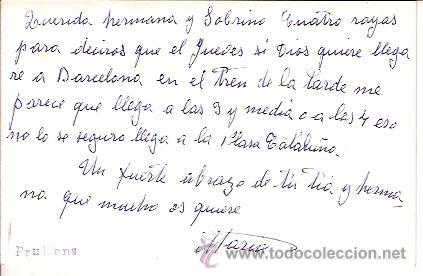 Querida hermana y Sobrino Cuatro rayas
para deciros que el Jueves si Dios quiere llega
re a Barcelona en el tren de la tarde me
parece que llega a las 3 y media o a las 4 eso
no lo se seguro llega a la Plasa Cataluña.
Un fuerte abrazo de tu tia y herma
na que mucho os quiere
Maria
Prullens
todocoleccion.net